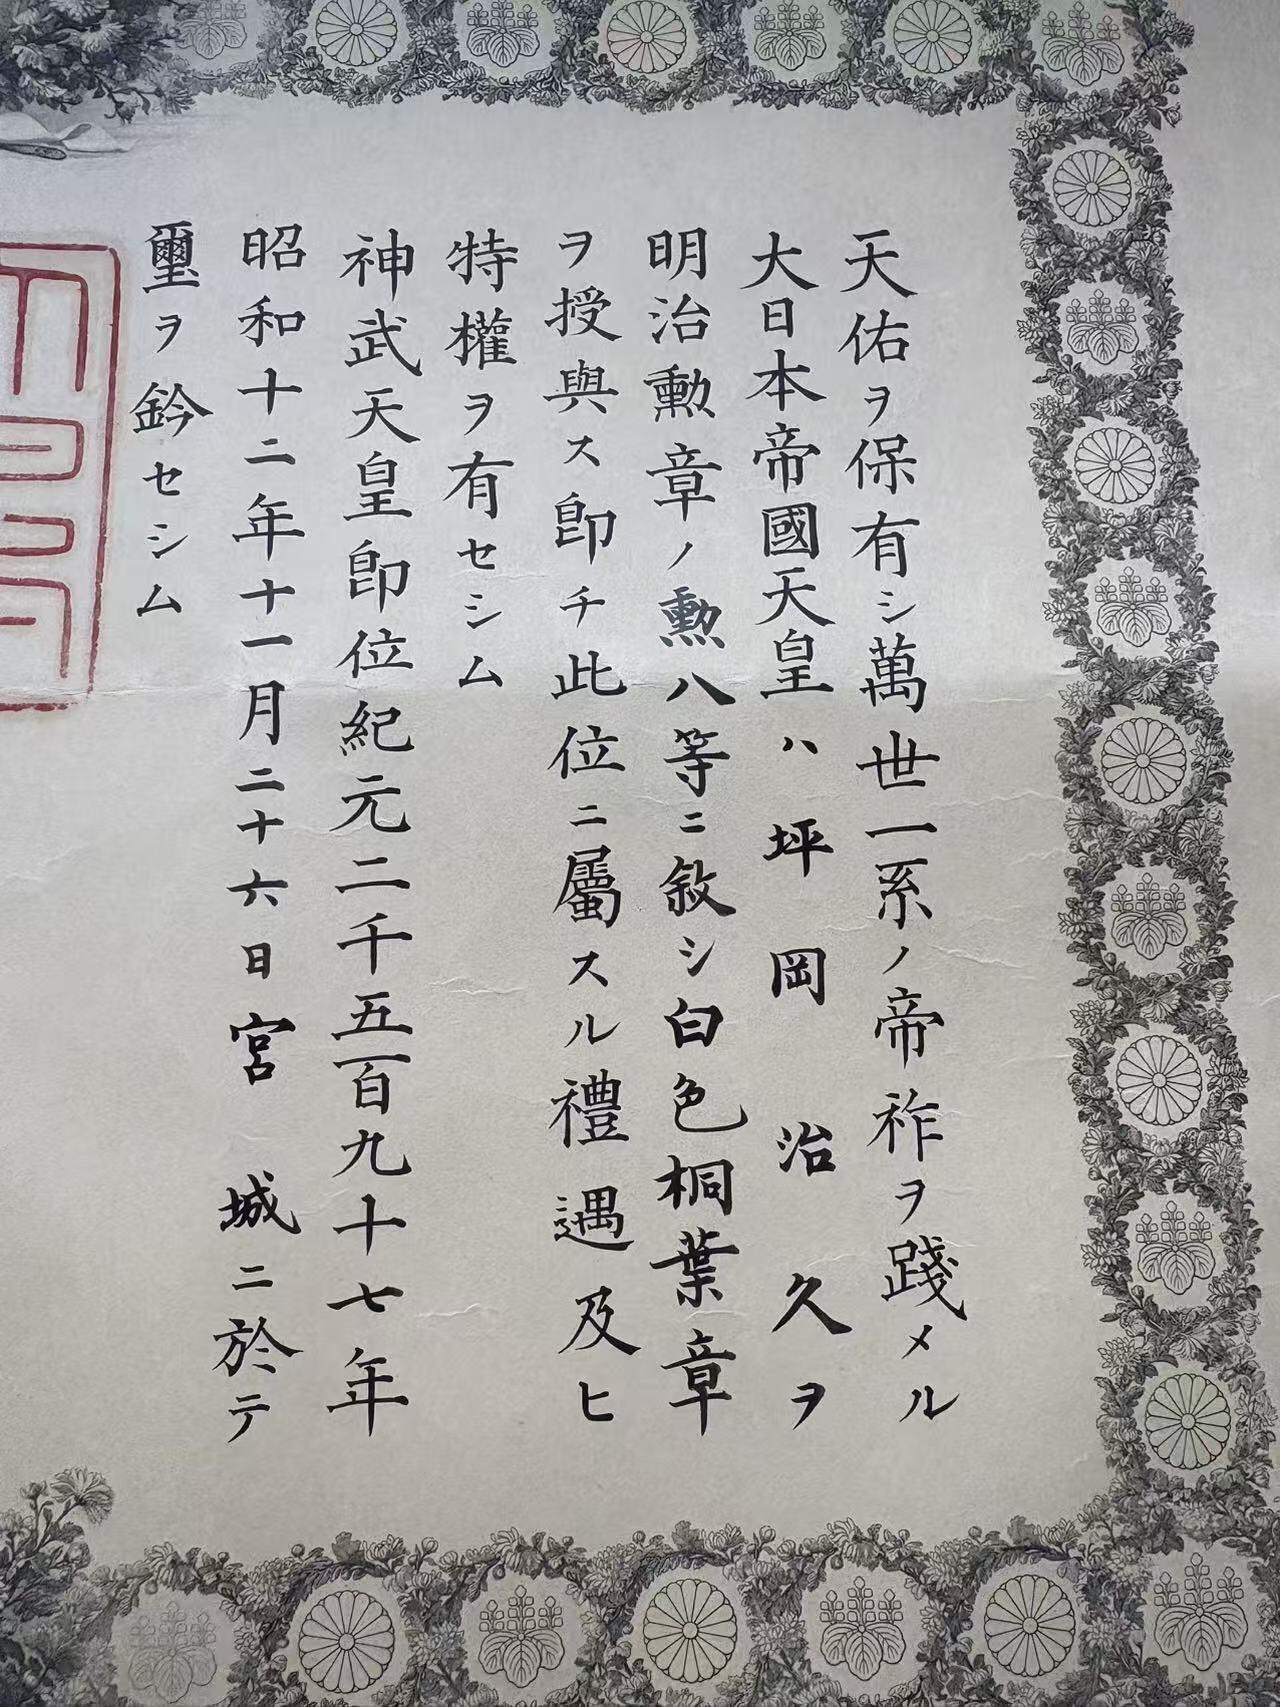 天佑ヲ保有シ萬世一系ノ帝祚ヲ踐メル
大日本帝國天皇ハ坪岡治久ヲ
明治勳章ノ勲八等ニ敘シ白色桐葉章
ヲ授與ス卽チ此位ニ屬スル禮遇及ヒ
特權ヲ有セシム
神武天皇卽位紀元二千五百九十七年
昭和十二年十一月二十六日宮城ニ於テ
璽ヲ鈐セシム